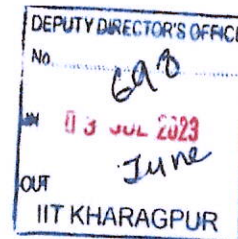 DEPUTY DIRECTOR'S OFFICE
No. 698
IN 03 JUL 2023
June
OUT
IIT KHARAGPUR